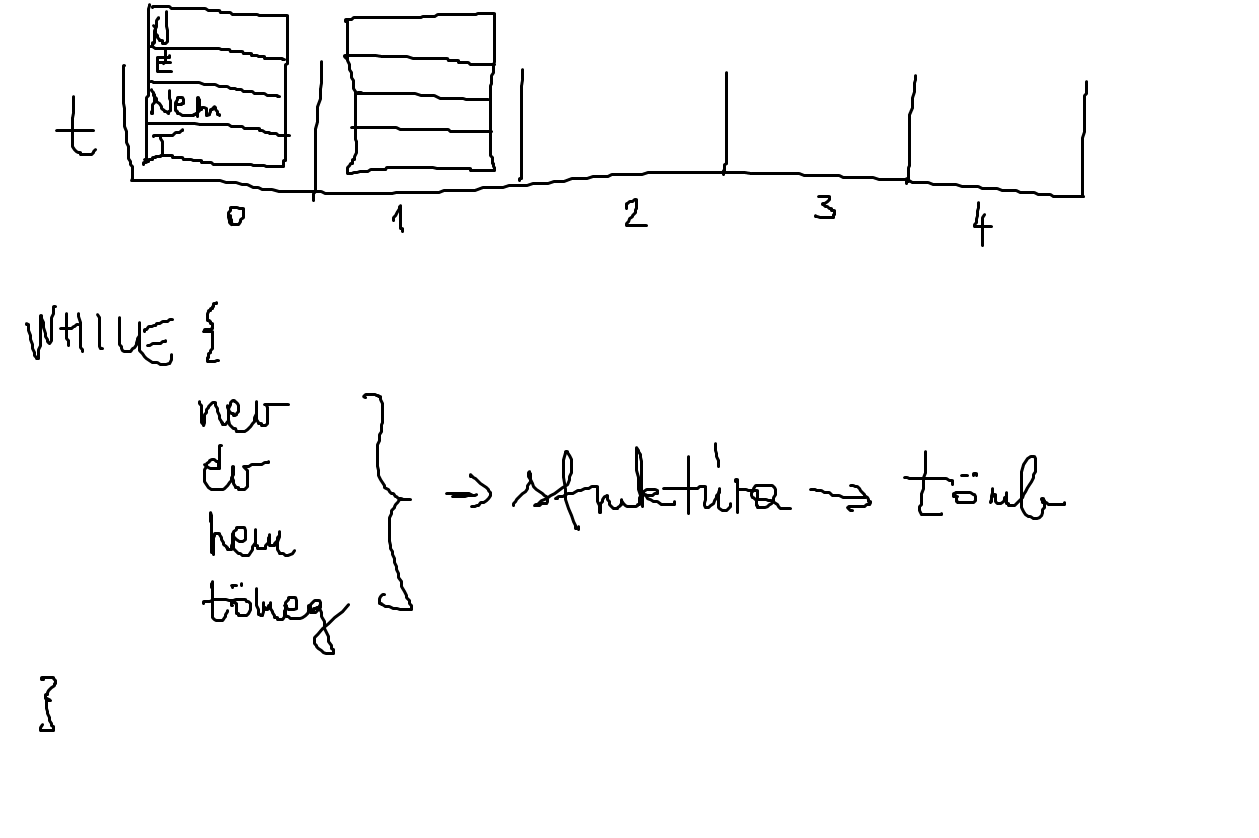 N
É
Nem
T
t
0 1 2 3 4
WHILE {
nev
ev
nem
tömeg
→ struktúra → tömb
}